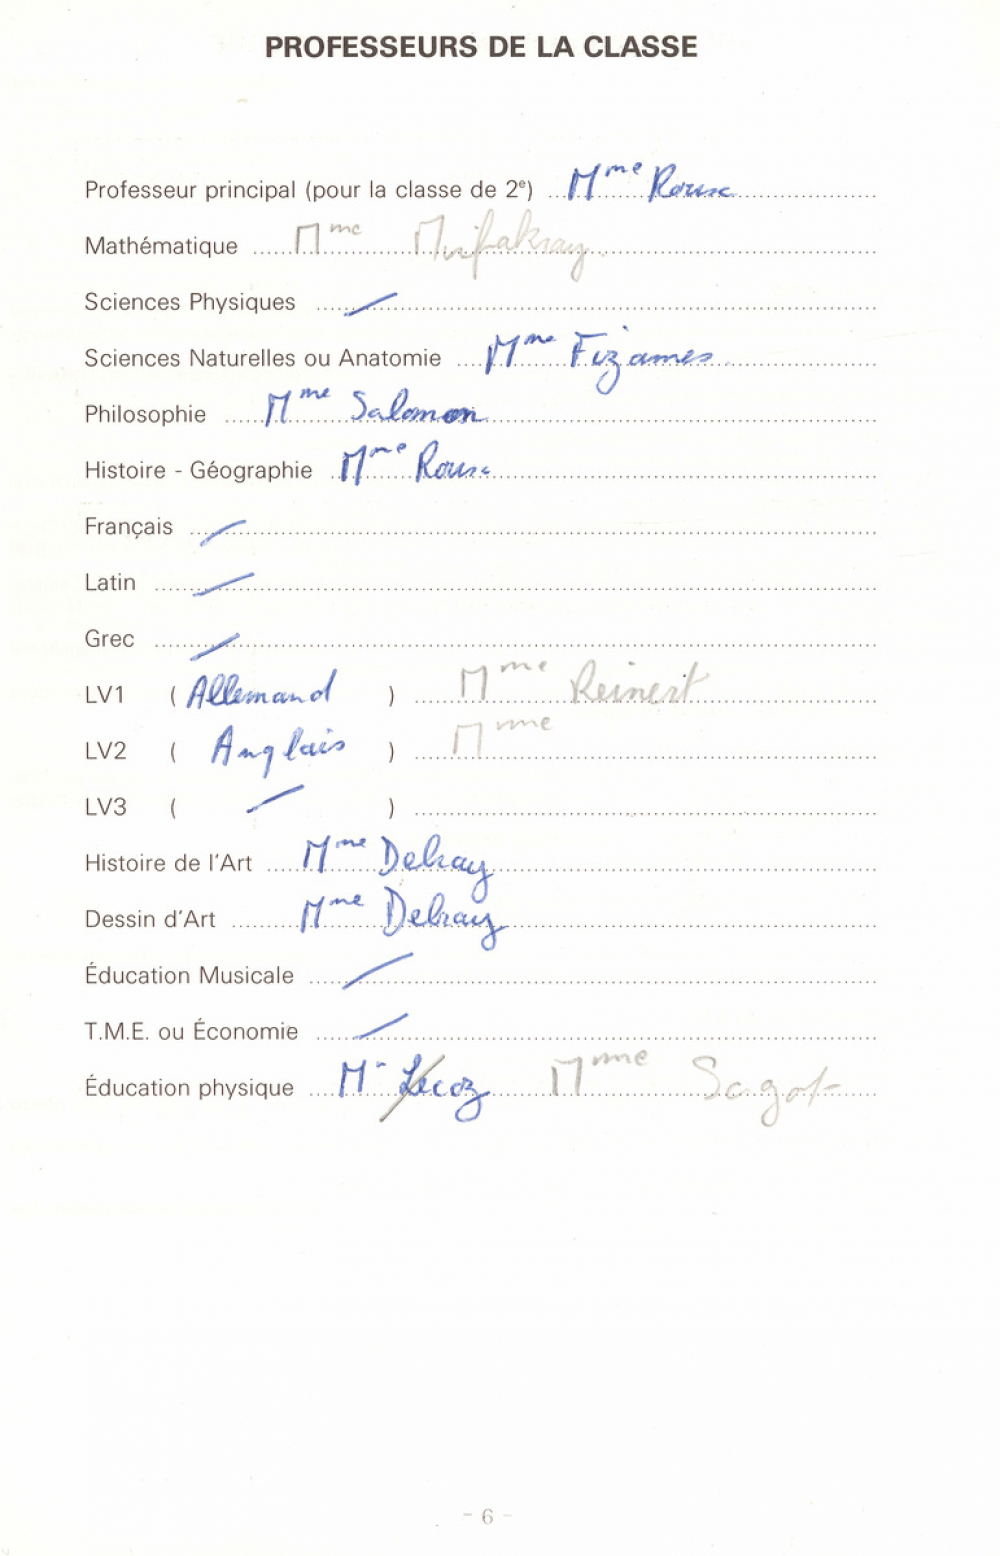 PROFESSEURS DE LA CLASSE
Professeur principal (pour la classe de 2e) Mme Roux
Mathématique Mme
Sciences Physiques
Sciences Naturelles ou Anatomie Mme Fizames
Philosophie Mme Salomon
Histoire - Géographie Mme Roux
Français
Latin
Grec
LV1 ( Allemand ) Mme Reinert
LV2 ( Anglais ) Mme
LV3 ( )
Histoire de l'Art Mme Delray
Dessin d'Art Mme Delray
Éducation Musicale
T.M.E. ou Économie
Éducation physique Mr Lecoz Mme Sagot
- 6 -